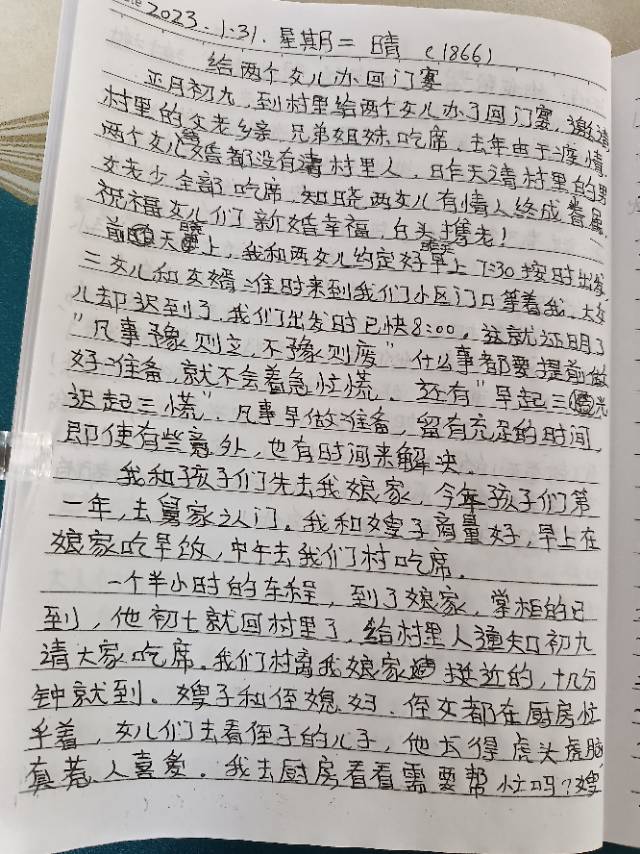 2023.1.31.星期二 晴 (1866)
给两个女儿办回门宴
正月初九,到村里给两个女儿办了回门宴,邀请
村里的父老乡亲,兄弟姐妹吃席,去年由于疫情
两个女儿结婚都没有请村里人,昨天请村里的男
女老少全部吃席,知晓两女儿有情人终成眷属,
祝福女儿们新婚幸福,白头携老!
前天晚上,我和两女儿约定好早上7:30按时出发,
二女儿和女婿准时来到我们小区门口等着我,大女
儿却迟到了,我们出发时已快8:00,这就证明了
"凡事予豫则立,不豫则废"什么事都要提前做
好准备,就不会着急忙慌,还有"早起三光
迟起三慌",凡事早做准备,留有充足的时间,
即使有些意外,也有时间来解决。
我和孩子们先去我娘家,今年孩子们第
一年,去舅家认门。我和嫂子商量好,早上在
娘家吃早饭,中午去我们村吃席。
一个半小时的车程,到了娘家,掌柜的已
到,他初七就回村里了,给村里人通知初九
请大家吃席。我们村离我娘家挺近的,十几分
钟就到。嫂子和侄媳妇、侄女都在厨房忙
乎着,女儿们去看侄子的儿子,他长得虎头虎脑
真惹人喜爱。我去厨房看看需要帮忙吗?嫂